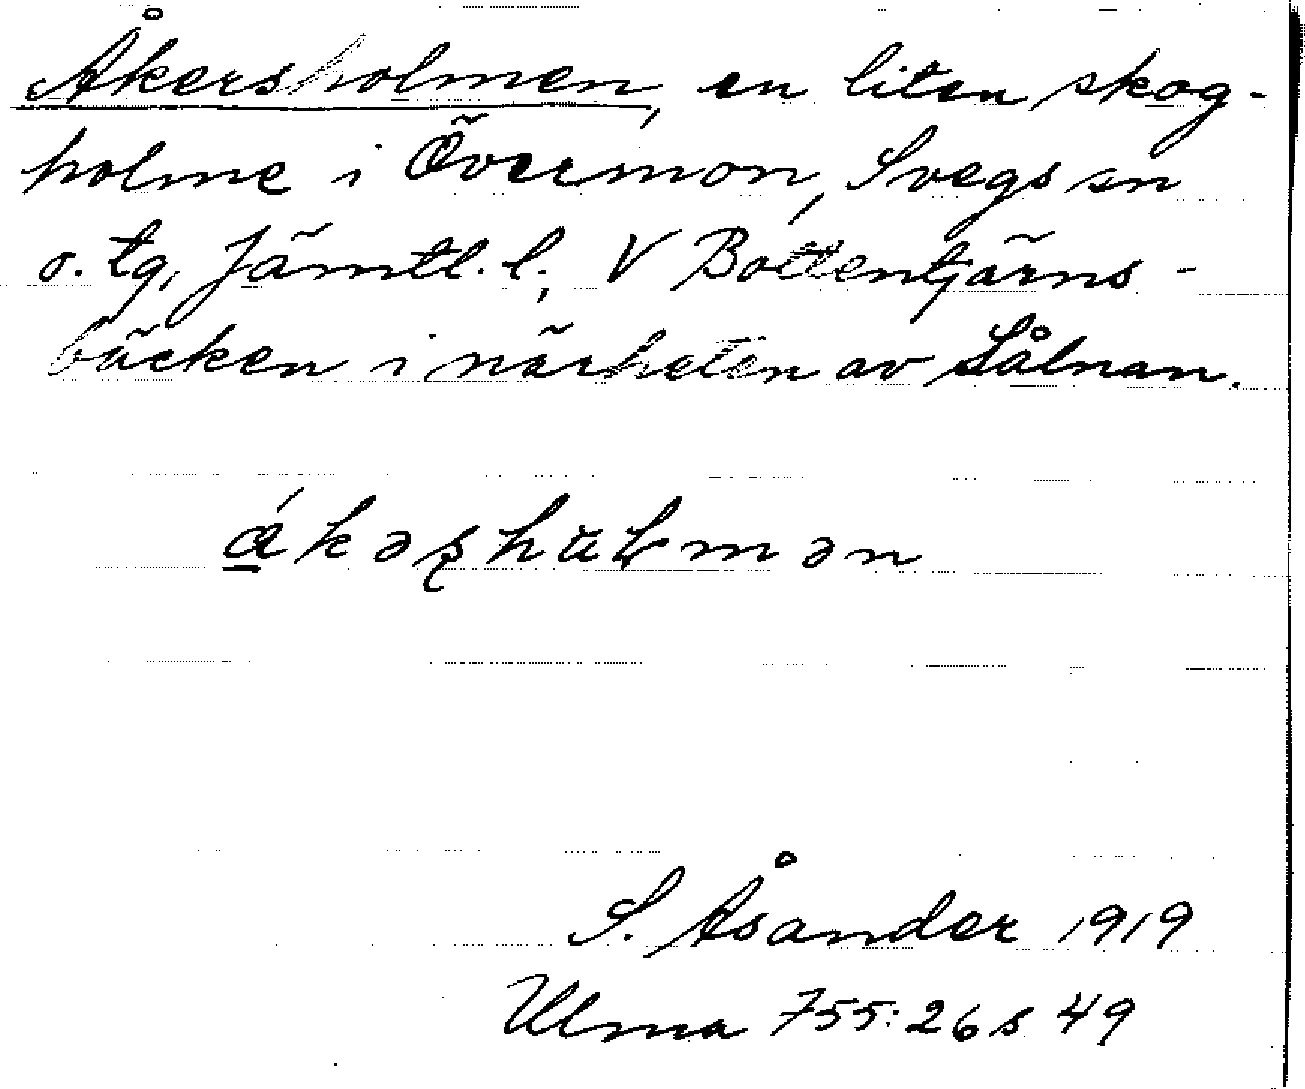 Åkersholmen, en liten skog-
holme i Övermon, Svegs sn
o. tg, Jämtl. l; V Bottentjärns-
bäcken i närheten av Sålnan.
S. Åsander 1919
Ulma 755:26 s 49